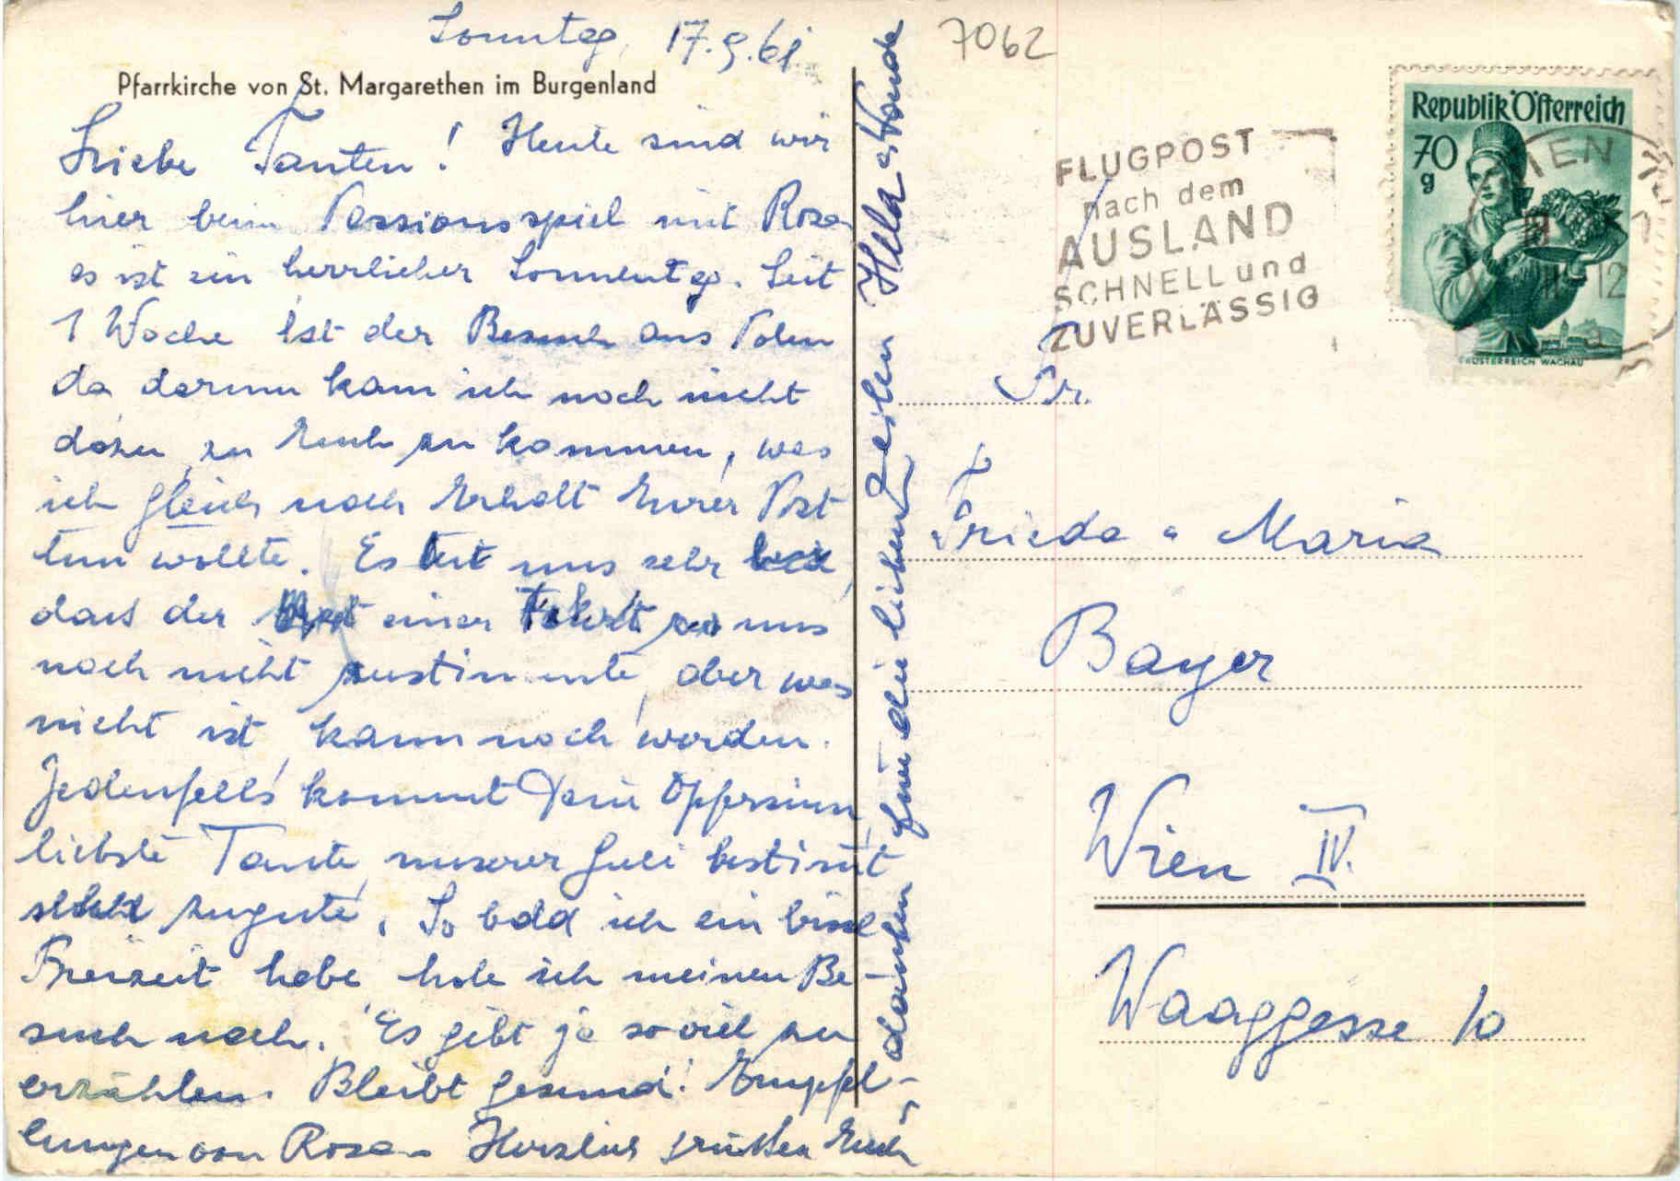 Sonntag, 17.9.61.
Pfarrkirche von St. Margarethen im Burgenland
Liebe Tanten! Heute sind wir
hier beim Passionsspiel mit Rosa
es ist ein herrlicher Sonnentag. Seit
1 Woche ist der Besuch aus Polen
da darum kam ich noch nicht
dazu zu Euch zu kommen, was
ich gleich nach Erhalt Eurer Post
tun wollte. Es tut uns sehr leid,
dass der Arzt einer Fahrt zu uns
noch nicht zustimmte, aber was
nicht ist, kann noch werden.
Jedenfalls kommt Dein Opfersinn,
liebste Tante, unserer Juli bestimmt
zugute. So bald ich ein bissl
Freizeit habe hole ich meinen Be-
such nach. Es gibt ja soviel zu
erzählen. Bleibt gesund! Empfeh-
lungen von Rosa. Herzlich grüßen Euch
danken für die lieben Zeilen Hella
7062
FLUGPOST
nach dem
AUSLAND
SCHNELL und
ZUVERLÄSSIG
Republik Österreich
70
g
WIEN
12
NIEDERÖSTERREICH WACHAU
Fr.
Frieda u Maria
Bayer
Wien IV.
Waaggasse 10